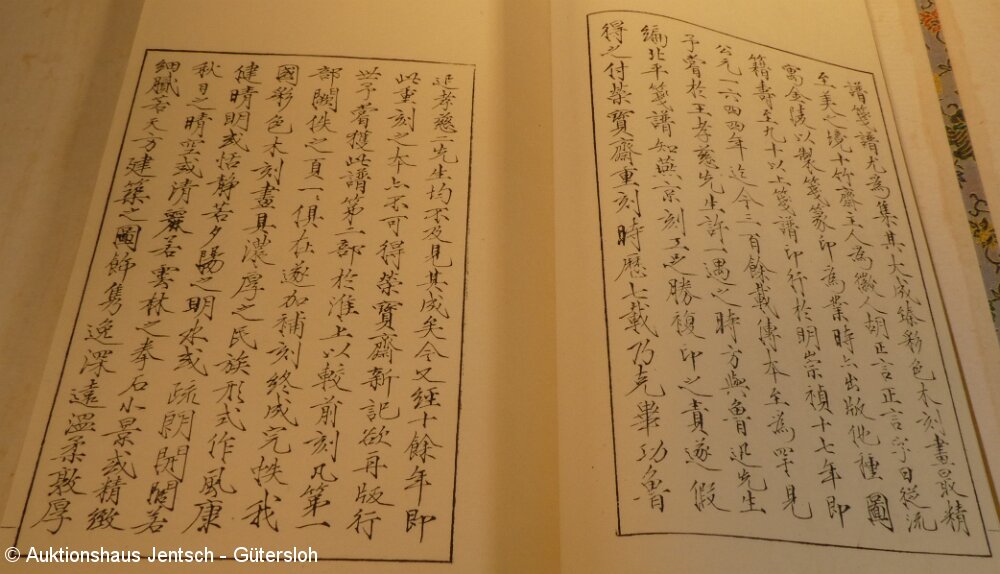 譜箋譜尤為集其大成臻彩色木刻畫最精
至美之境十竹齋主人為徽人胡正言正言字曰從流
寓金陵以製箋篆印為業時亦出版他種圖
籍壽至九十以上箋譜印行於明崇禎十七年即
公元一六四四年迄今三百餘載傳本至為罕見
予嘗於王孝慈先生許一遇之時方與魯迅先生
編北平箋譜知燕京刻工之勝複印之責遂假
得之付榮寶齋重刻時歷七載乃克畢功魯
迅孝慈二先生均不及見其成矣今又經十餘年即
此重刻之本亦不可得榮寶齋新記欲再版行
世予嘗獲此譜第二部於淮上以較前刻凡第一
部闕佚之頁一一俱在遂加補刻終成完帙我
國彩色木刻畫具濃厚之民族形式作風康
健晴明或恬靜若夕陽之明水或疏朗開闊若
秋日之晴空或清麗若雲林之拳石小景或精緻
細膩若天方建築之圖飾雋逸深遠溫柔敦厚
© Auktionshaus Jentsch - Gütersloh